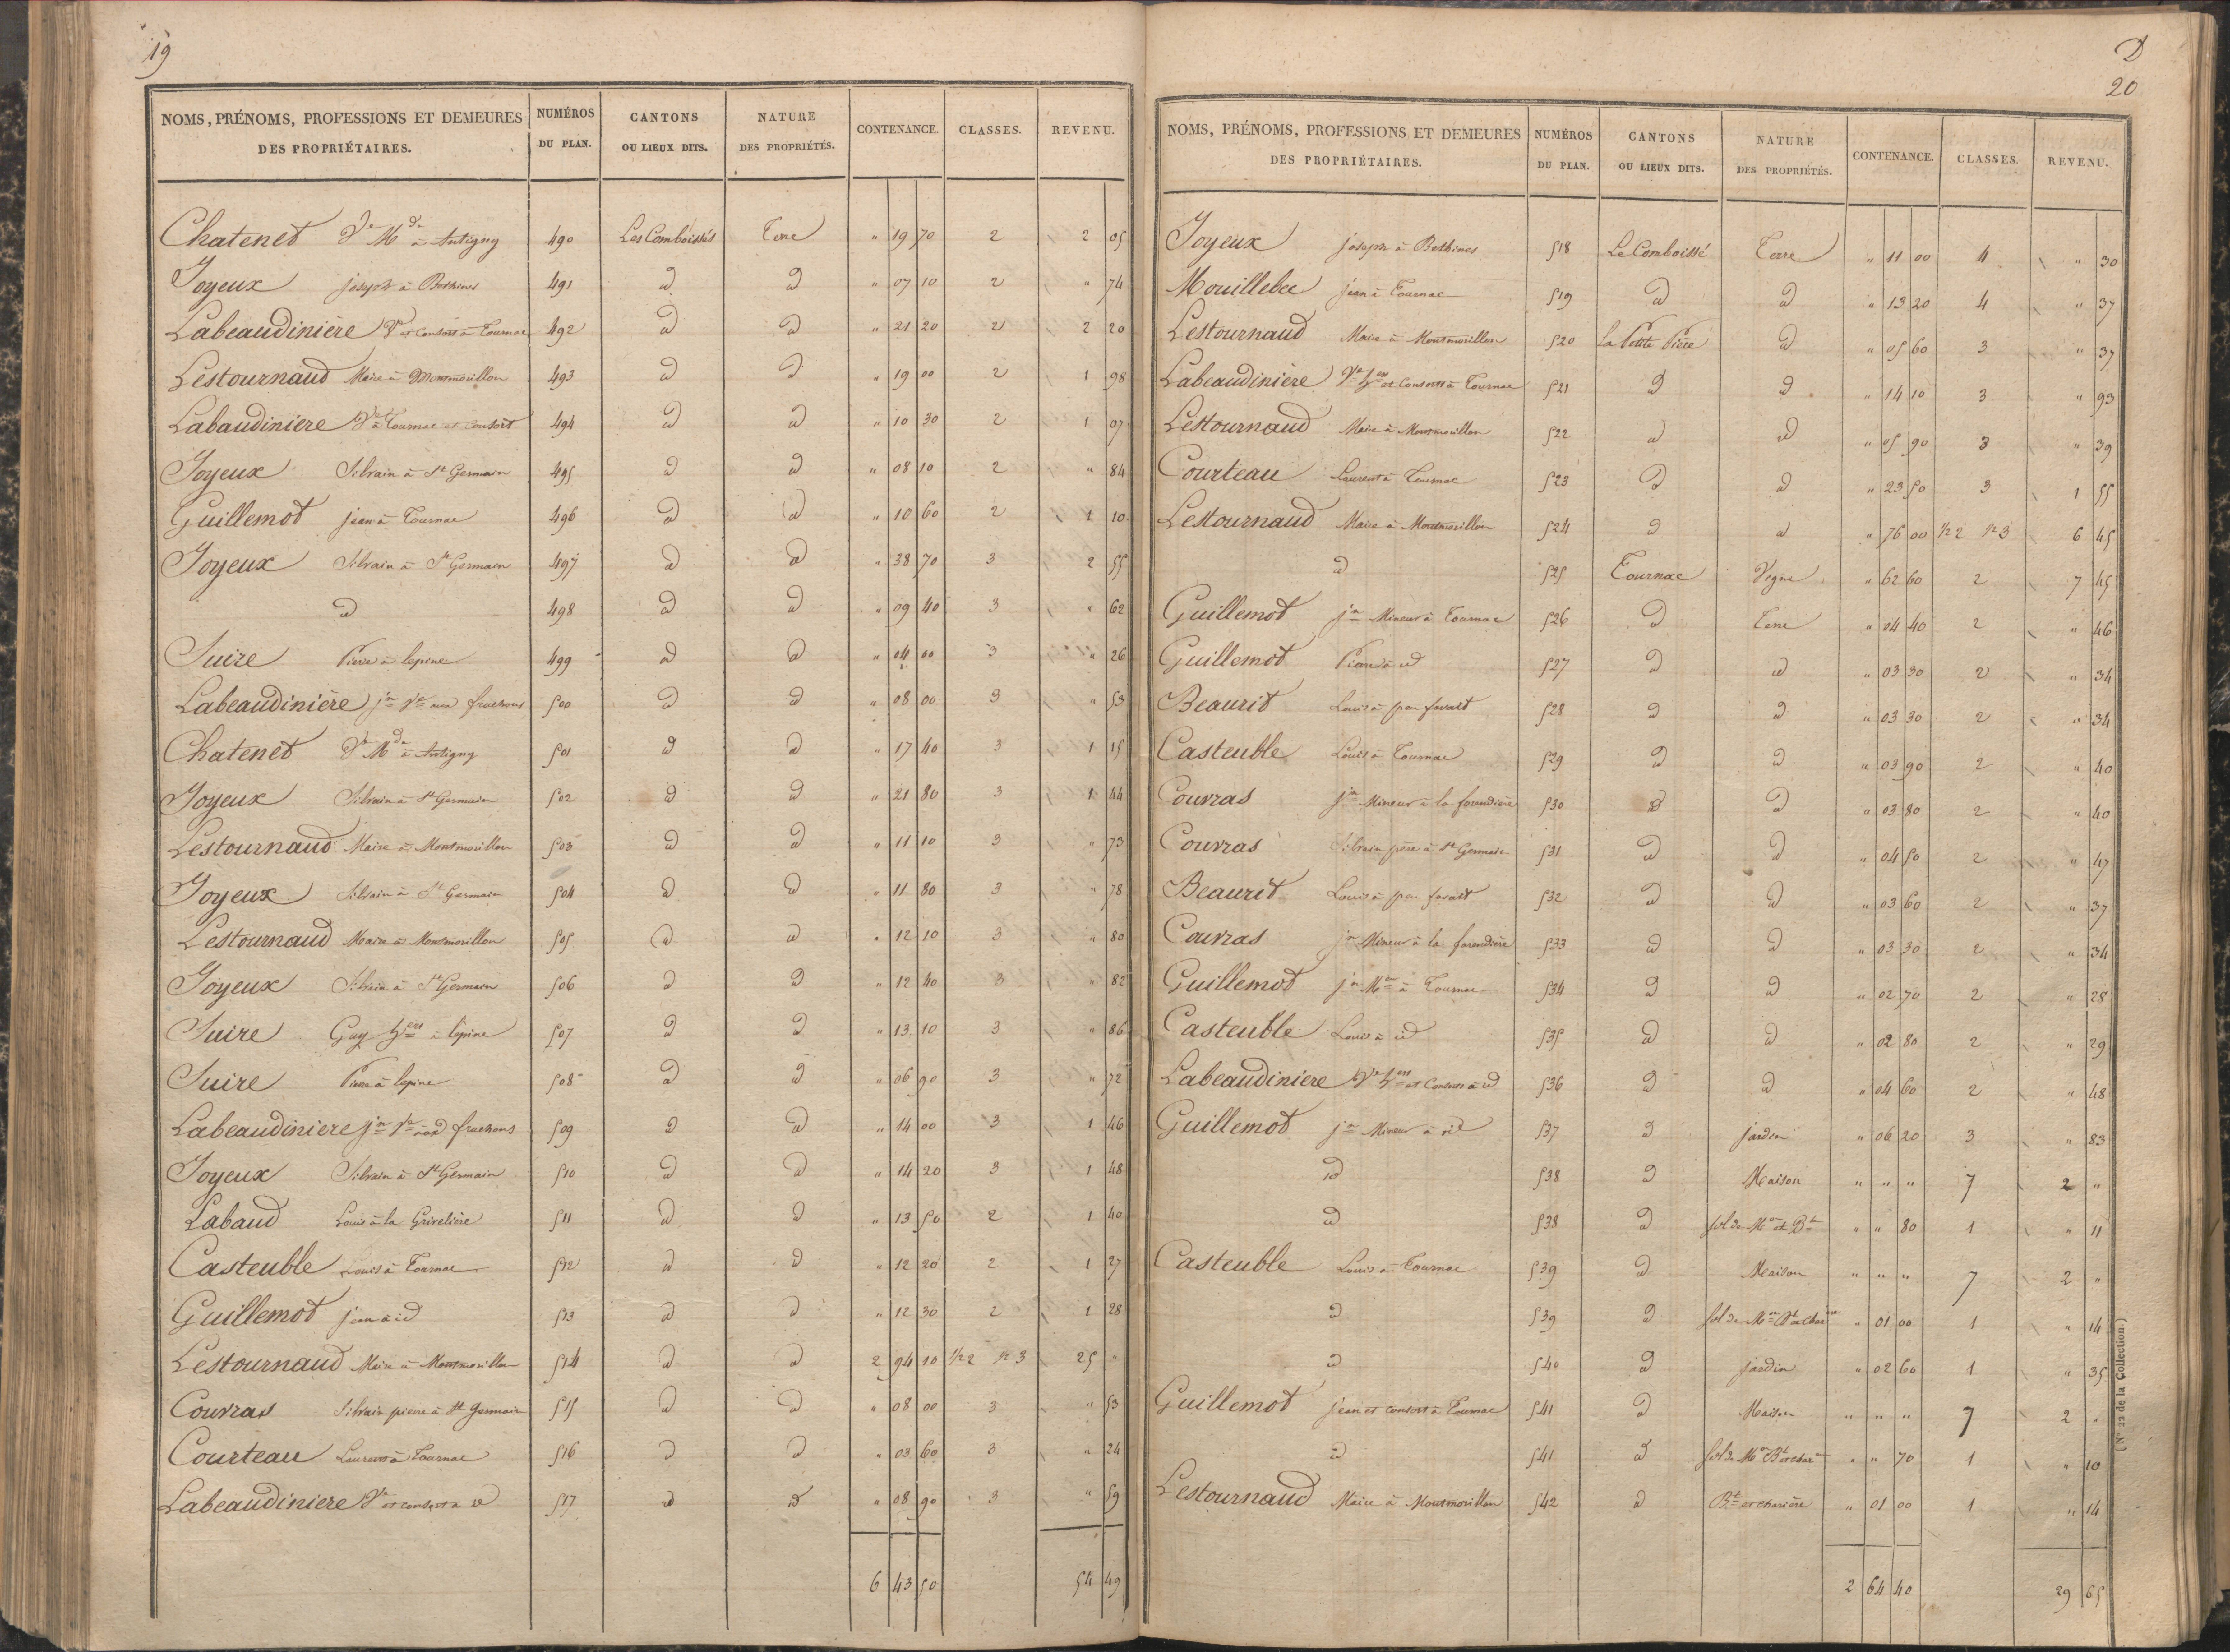 19
NOMS, PRÉNOMS, PROFESSIONS ET DEMEURES DES PROPRIÉTAIRES. NUMÉROS DU PLAN. CANTONS OU LIEUX DITS. NATURE DES PROPRIÉTÉS. CONTENANCE. CLASSES. REVENU.
Chatenet Ve Md à Antigny 490 Les Comboissés Terre " 19 70 2 2 05
Joyeux joseph à Bethines 491 id id " 07 10 2 " 74
Labeaudinière Ve et consort à Tournac 492 id id " 21 20 2 2 20
Lestournaud Maire à Montmorillon 493 id id " 19 00 2 1 98
Labaudinière Ve à Tournac et consort 494 id id " 10 30 2 1 07
Joyeux Silvain à St Germain 495 id id " 08 10 2 " 84
Guillemot jean à Tournac 496 id id " 10 60 2 1 10
Joyeux Silvain à St Germain 497 id id " 38 70 3 2 55
id 498 id id " 09 40 3 " 62
Suire Pierre à lepine 499 id id " 04 00 3 " 26
Labeaudinière jn Ve aux fruchons 500 id id " 08 00 3 " 53
Chatenet Ve Md à Antigny 501 id id " 17 40 3 1 15
Joyeux Silvain à St Germain 502 id id " 21 80 3 1 44
Lestournaud Maire à Montmorillon 503 id id " 11 10 3 " 73
Joyeux Silvain à St Germain 504 id id " 11 80 3 " 78
Lestournaud Maire à Montmorillon 505 id id " 12 10 3 " 80
Joyeux Silvain à St Germain 506 id id " 12 40 3 " 82
Suire Guy hers à lépine 507 id id " 13 10 3 " 86
Suire Pierre à lepine 508 id id " 06 90 3 " 72
Labeaudiniere jn Ve aux fruchons 509 id id " 14 00 3 1 46
Joyeux Silvain à St Germain 510 id id " 14 20 3 1 48
Labaud Louis à la Grivelière 511 id id " 13 50 2 1 40
Casteuble Louis à Tournac 512 id id " 12 20 2 1 27
Guillemot jean à id 513 id id " 12 30 2 1 28
Lestournaud Maire à Montmorillon 514 id id 2 94 10 1/2 2 1/2 3 25 "
Couvras Silvain pierre à St Germain 515 id id " 08 00 3 " 53
Courteau Laurent à Tournac 516 id id " 03 60 3 " 24
Labeaudiniere Ve et consort à id 517 id id " 08 90 3 " 59
6 43 50 54 49
D
20
NOMS, PRÉNOMS, PROFESSIONS ET DEMEURES DES PROPRIÉTAIRES. NUMÉROS DU PLAN. CANTONS OU LIEUX DITS. NATURE DES PROPRIÉTÉS. CONTENANCE. CLASSES. REVENU.
Joyeux joseph à Bethines 518 Le Comboissé Terre " 11 00 4 " 30
Mouillebec jean à Tournac 519 id id " 13 20 4 " 37
Lestournaud Maire à Montmorillon 520 la Petite Pièce id " 05 60 3 " 37
Labeaudinière Ve hers et Consorts à Tournac 521 id id " 14 10 3 " 93
Lestournaud Maire à Montmorillon 522 id id " 05 90 3 " 39
Courteau Laurent à Tournac 523 id id " 23 50 3 1 55
Lestournaud Maire à Montmorillon 524 id id " 76 00 1/2 2 1/2 3 6 45
id 525 Tournac Vigne " 62 60 2 7 45
Guillemot jn Mineur à Tournac 526 id Terre " 04 40 2 " 46
Guillemot Pierre à id 527 id id " 03 30 2 " 34
Beaurit Louis à 528 id id " 03 30 2 " 34
Casteuble Louis à Tournac 529 id id " 03 90 2 " 40
Couvras jn Mineur à la forendière 530 id id " 03 80 2 " 40
Couvras Silvain père à St Germain 531 id id " 04 50 2 " 47
Beaurit Louis à 532 id id " 03 60 2 " 37
Couvras jn Mineur à la forendière 533 id id " 03 30 2 " 34
Guillemot jn Mr à Tournac 534 id id " 02 70 2 " 28
Casteuble Louis à id 535 id id " 02 80 2 " 29
Labeaudiniere Ve hers et Consorts à id 536 id id " 04 60 2 " 48
Guillemot jn Mineur à id 537 id jardin " 06 20 3 " 83
id 538 id Maison " " " 7 2 "
id 538 id sol de Mon et Bt " " 80 1 " 11
Casteuble Louis à Tournac 539 id Maison " " " 7 2 "
id 539 id sol de Mon Bt et char " 01 00 1 " 14
id 540 id jardin " 02 60 1 " 35
Guillemot jean et consort à Tournac 541 id Maison " " " 7 2 "
id 541 id sol de Mon Bt et char " " 70 1 " 10
Lestournaud Maire à Montmorillon 542 id Bt et charière " 01 00 1 " 14
2 64 40 29 65
(N° 22 de la Collection.)